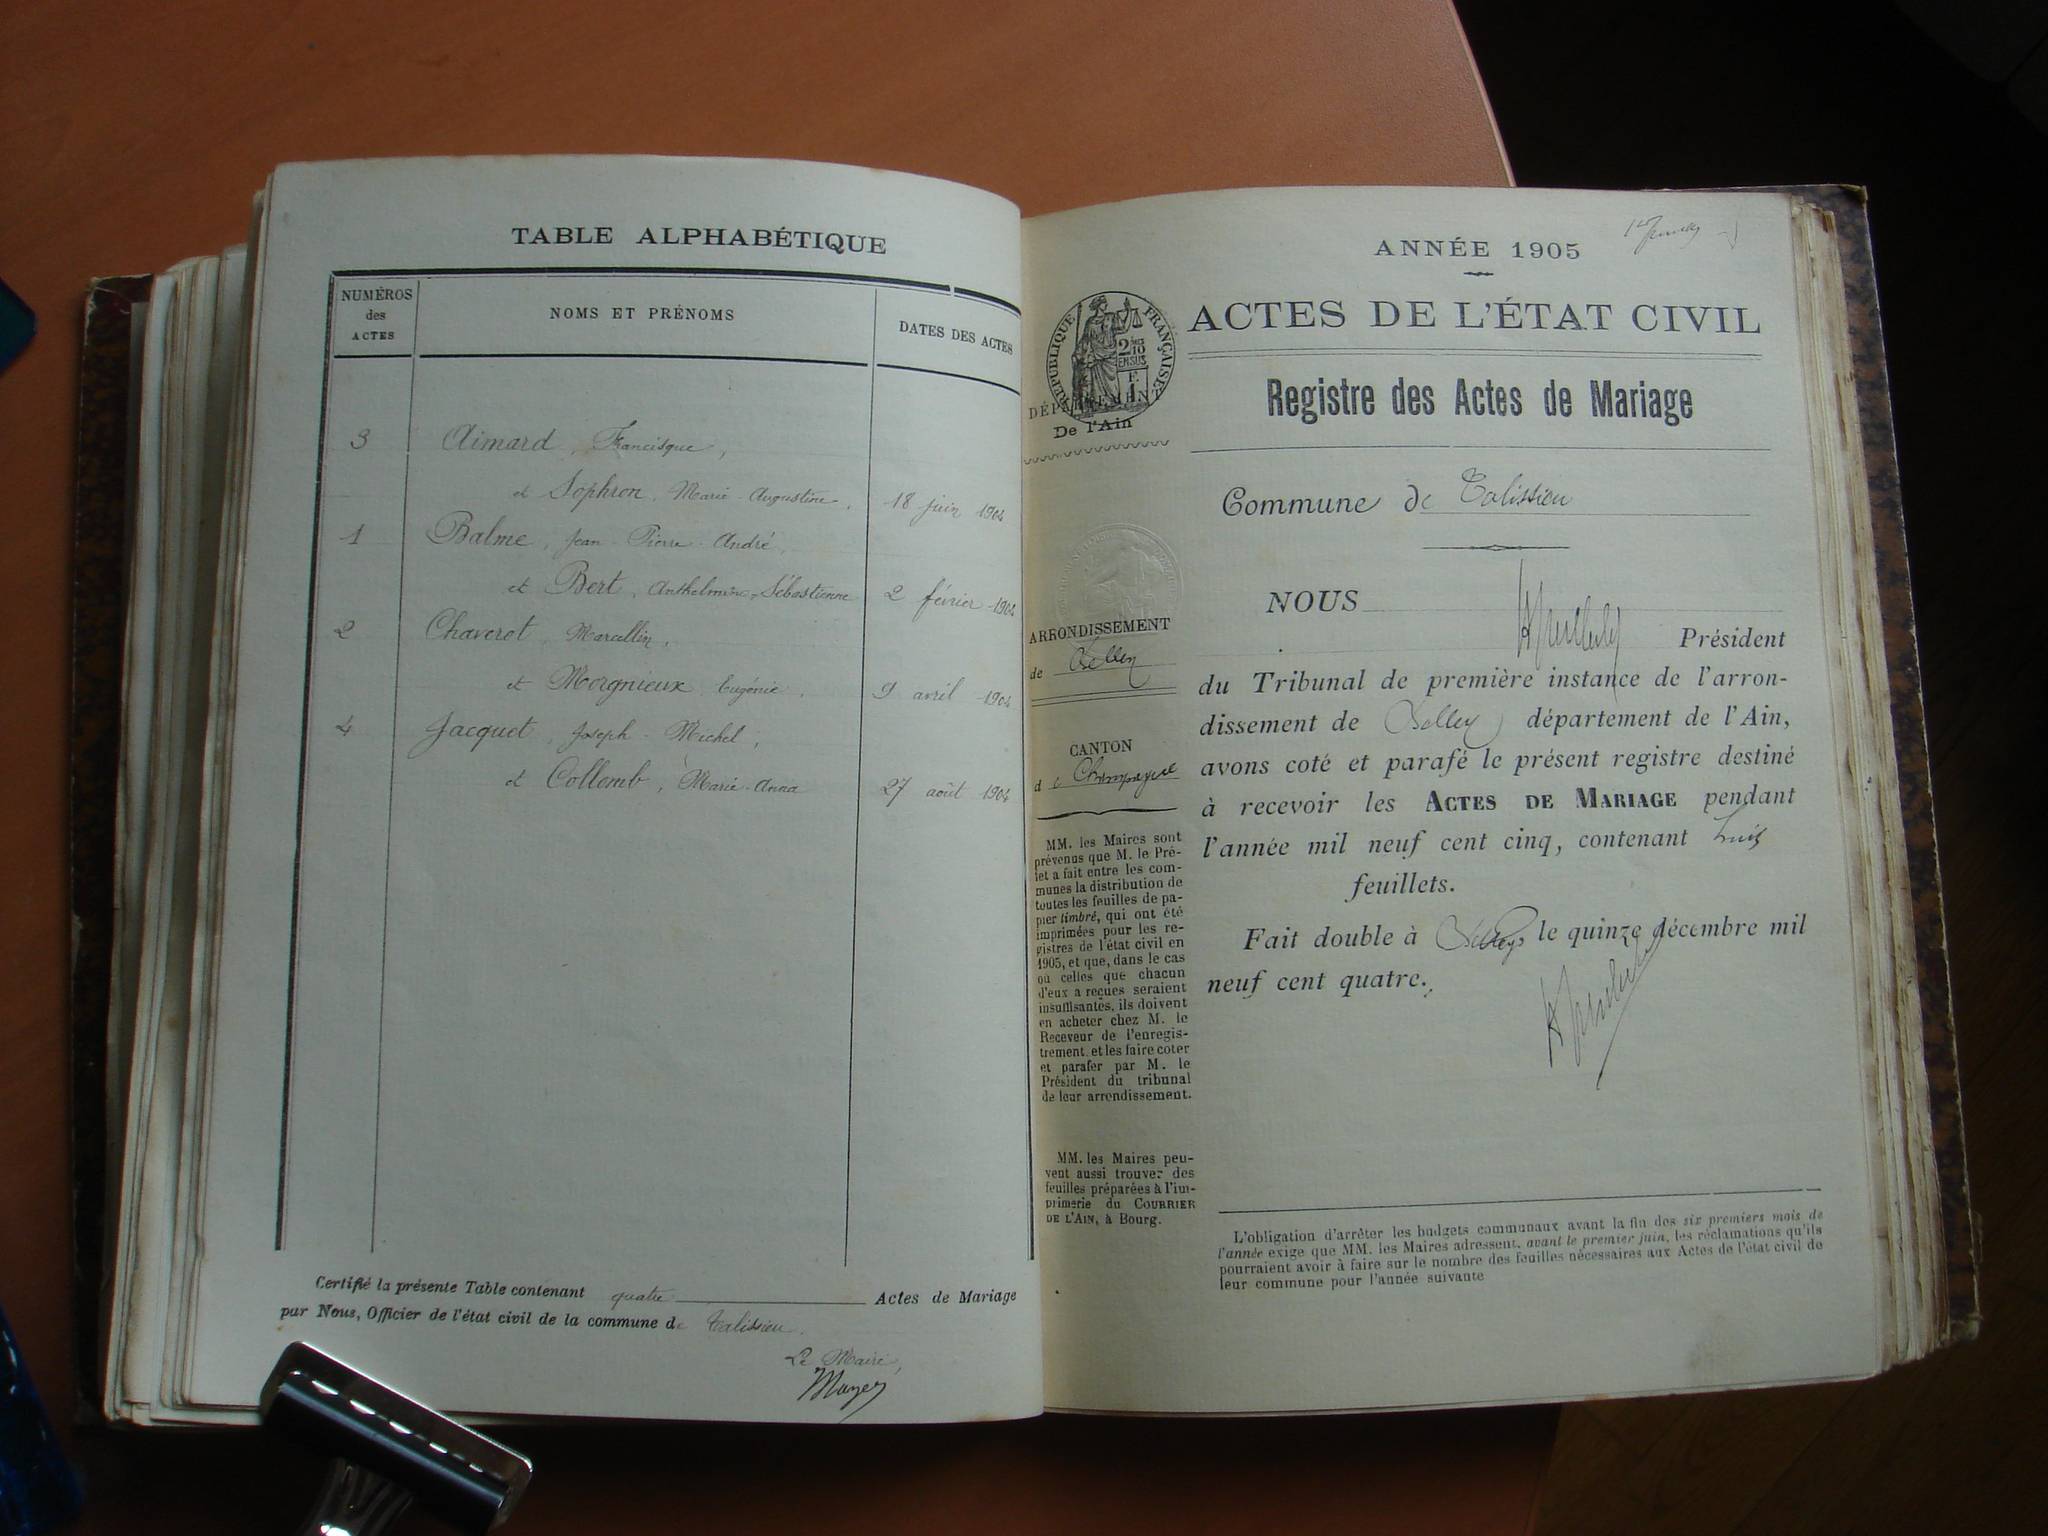 TABLE ALPHABÉTIQUE
NUMÉROS
des
ACTES
NOMS ET PRÉNOMS
DATES DES ACTES
3 Aimard, Francisque,
et Sophron, Marie-Augustine, 18 juin 1904
1 Balme, Jean-Pierre-André,
et Bert, Anthelmine-Sébastienne 2 février 1904
2 Chaverot, Marcellin,
et Morgnieux Eugénie, 9 avril 1904
4 Jacquet, Joseph-Michel,
et Collomb, Marie-Anna 27 août 1904
Certifié la présente Table contenant quatre Actes de Mariage
par Nous, Officier de l'état civil de la commune de Talissieu.
Le Maire,
ANNÉE 1905
ACTES DE L'ÉTAT CIVIL
RÉPUBLIQUE FRANÇAISE
DÉPARTEMENT
De l'Ain
Registre des Actes de Mariage
Commune de Talissieu
ARRONDISSEMENT
de Belley
CANTON
de Champagne
MM. les Maires sont
prévenus que M. le Pré-
fet a fait entre les com-
munes la distribution de
toutes les feuilles de pa-
pier timbré, qui ont été
imprimées pour les re-
gistres de l'état civil en
1905, et que, dans le cas
où celles que chacun
d'eux a reçues seraient
insuffisantes, ils doivent
en acheter chez M. le
Receveur de l'enregis-
trement, et les faire coter
et parafer par M. le
Président du tribunal
de leur arrondissement.
MM. les Maires peu-
vent aussi trouver des
feuilles préparées à l'im-
primerie du COURRIER
DE L'AIN, à Bourg.
NOUS
Président
du Tribunal de première instance de l'arron-
dissement de Belley département de l'Ain,
avons coté et parafé le présent registre destiné
à recevoir les ACTES DE MARIAGE pendant
l'année mil neuf cent cinq, contenant huit
feuillets.
Fait double à Belley, le quinze décembre mil
neuf cent quatre.
L'obligation d'arrêter les budgets communaux avant la fin des six premiers mois de
l'année exige que MM. les Maires adressent, avant le premier juin, les réclamations qu'ils
pourraient avoir à faire sur le nombre des feuilles nécessaires aux Actes de l'état civil de
leur commune pour l'année suivante